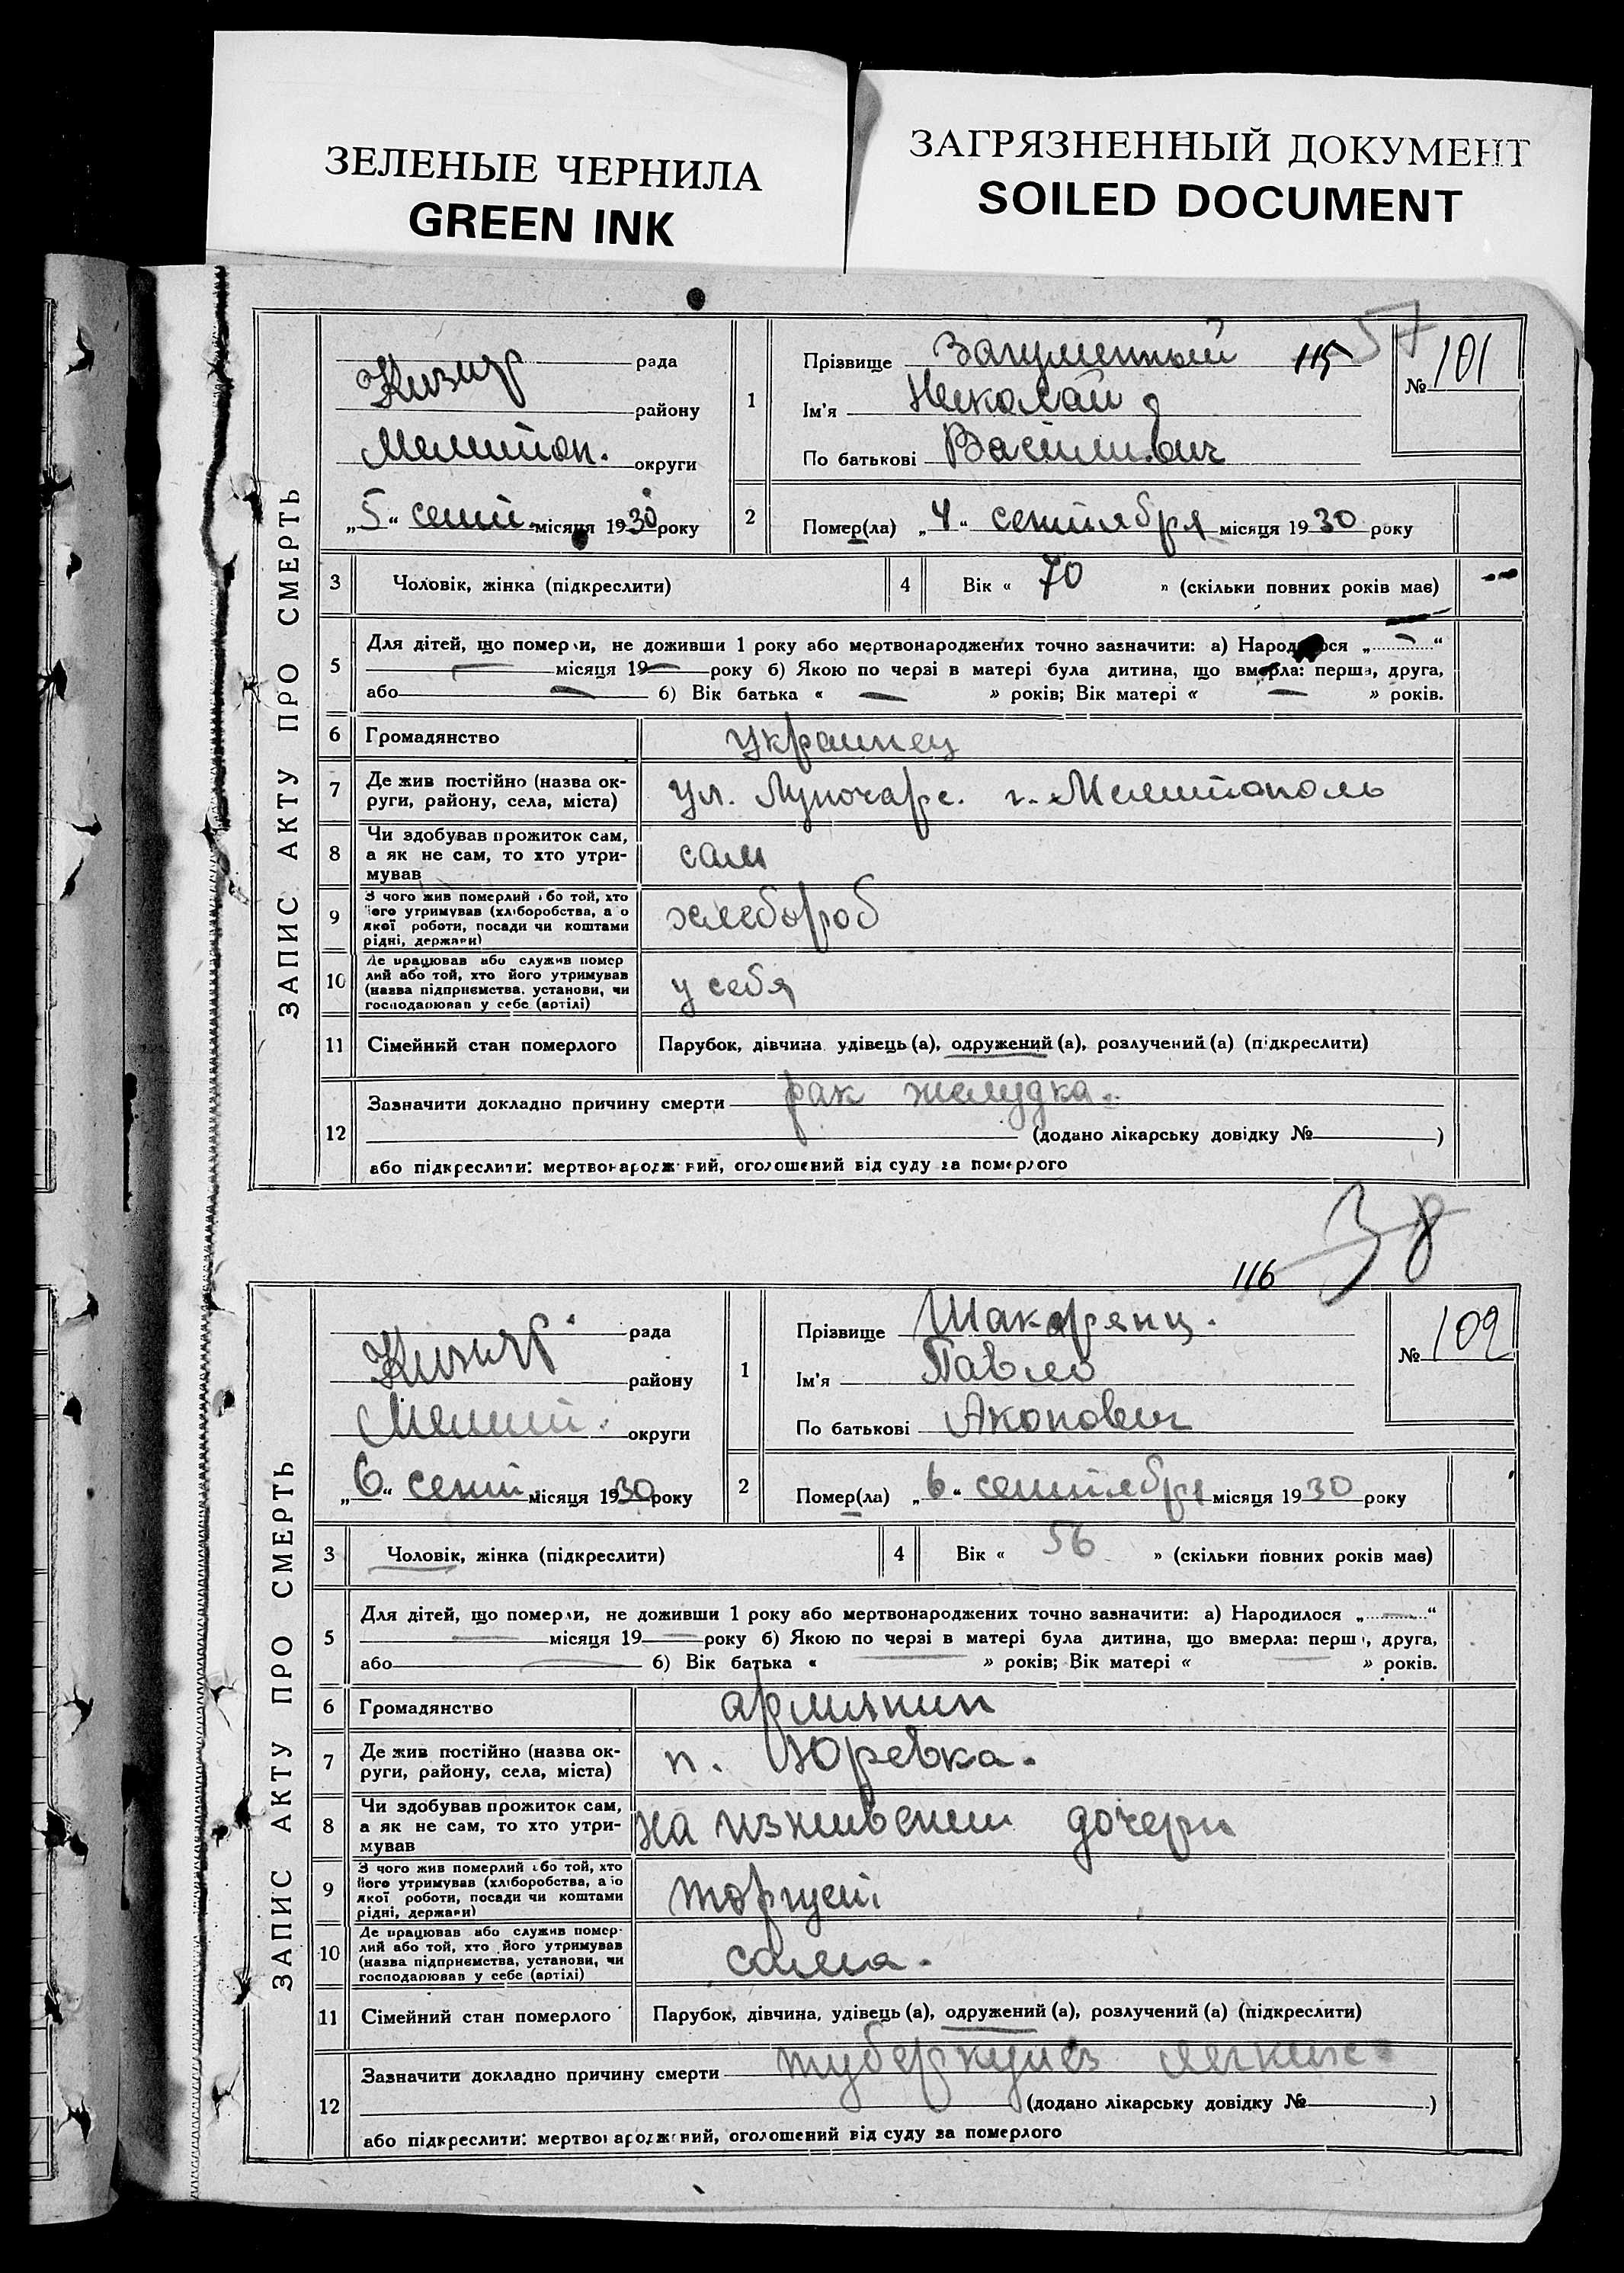 ЗЕЛЕНЫЕ ЧЕРНИЛА
GREEN INK
ЗАГРЯЗНЕННЫЙ ДОКУМЕНТ
SOILED DOCUMENT
57
115
№ 101
ЗАПИС АКТУ ПРО СМЕРТЬ
рада
Кизияр
району
Мелитоп. округи
„5“ сент. місяця 1930 року
1
Прізвище Загуменный
Ім'я Николай
По батькові Васильевич
2
Помер(ла) „4“ сентября місяця 1930 року
3 Чоловік, жінка (підкреслити)
4 Вік « 70 » (скільки повних років має)
5 Для дітей, що померли, не доживши 1 року або мертвонароджених точно зазначити: а) Народилося „ — “
— місяця 19 — року б) Якою по черзі в матері була дитина, що вмерла: перша, друга,
або — б) Вік батька « — » років; Вік матері « — » років.
6 Громадянство украинец
7 Де жив постійно (назва ок-
руги, району, села, міста) ул. Луночарс. г. Мелитополь
8 Чи здобував прожиток сам,
а як не сам, то хто утри-
мував сам
9 З чого жив померлий або той, хто
його утримував (хліборобства, або
якої роботи, посади чи коштами
рідні, держави) хлебороб
10 Де працював або служив помер
лий або той, хто його утримував
(назва підприємства, установи, чи
господарював у себе (артілі) у себя
11 Сімейний стан померлого Парубок, дівчина удівець (а), одружений (а), розлучений (а) (підкреслити)
12 Зазначити докладно причину смерти рак желудка.
(додано лікарську довідку № )
або підкреслити: мертвонароджений, оголошений від суду за померлого
38
116
№ 102
ЗАПИС АКТУ ПРО СМЕРТЬ
рада
Кизияр
району
Мелит. округи
„6“ сент. місяця 1930 року
1
Прізвище Шакарянц.
Ім'я Павло
По батькові Акопович
2
Помер(ла) „6“ сентября місяця 1930 року
3 Чоловік, жінка (підкреслити)
4 Вік « 56 » (скільки повних років має)
5 Для дітей, що померли, не доживши 1 року або мертвонароджених точно зазначити: а) Народилося „ — “
— місяця 19 — року б) Якою по черзі в матері була дитина, що вмерла: перша, друга,
або — б) Вік батька « — » років; Вік матері « — » років.
6 Громадянство армянин
7 Де жив постійно (назва ок-
руги, району, села, міста) п. Юревка.
8 Чи здобував прожиток сам,
а як не сам, то хто утри-
мував на изживении дочери
9 З чого жив померлий або той, хто
його утримував (хліборобства, або
якої роботи, посади чи коштами
рідні, держави) торгует
10 Де працював або служив помер-
лий або той, хто його утримував
(назва підприємства, установи, чи
господарював у себе (артілі) сама.
11 Сімейний стан померлого Парубок, дівчина, удівець (а), одружений (а), розлучений (а) (підкреслити)
12 Зазначити докладно причину смерти туберкулез легких
(додано лікарську довідку № )
або підкреслити: мертвонароджений, оголошений від суду за померлого